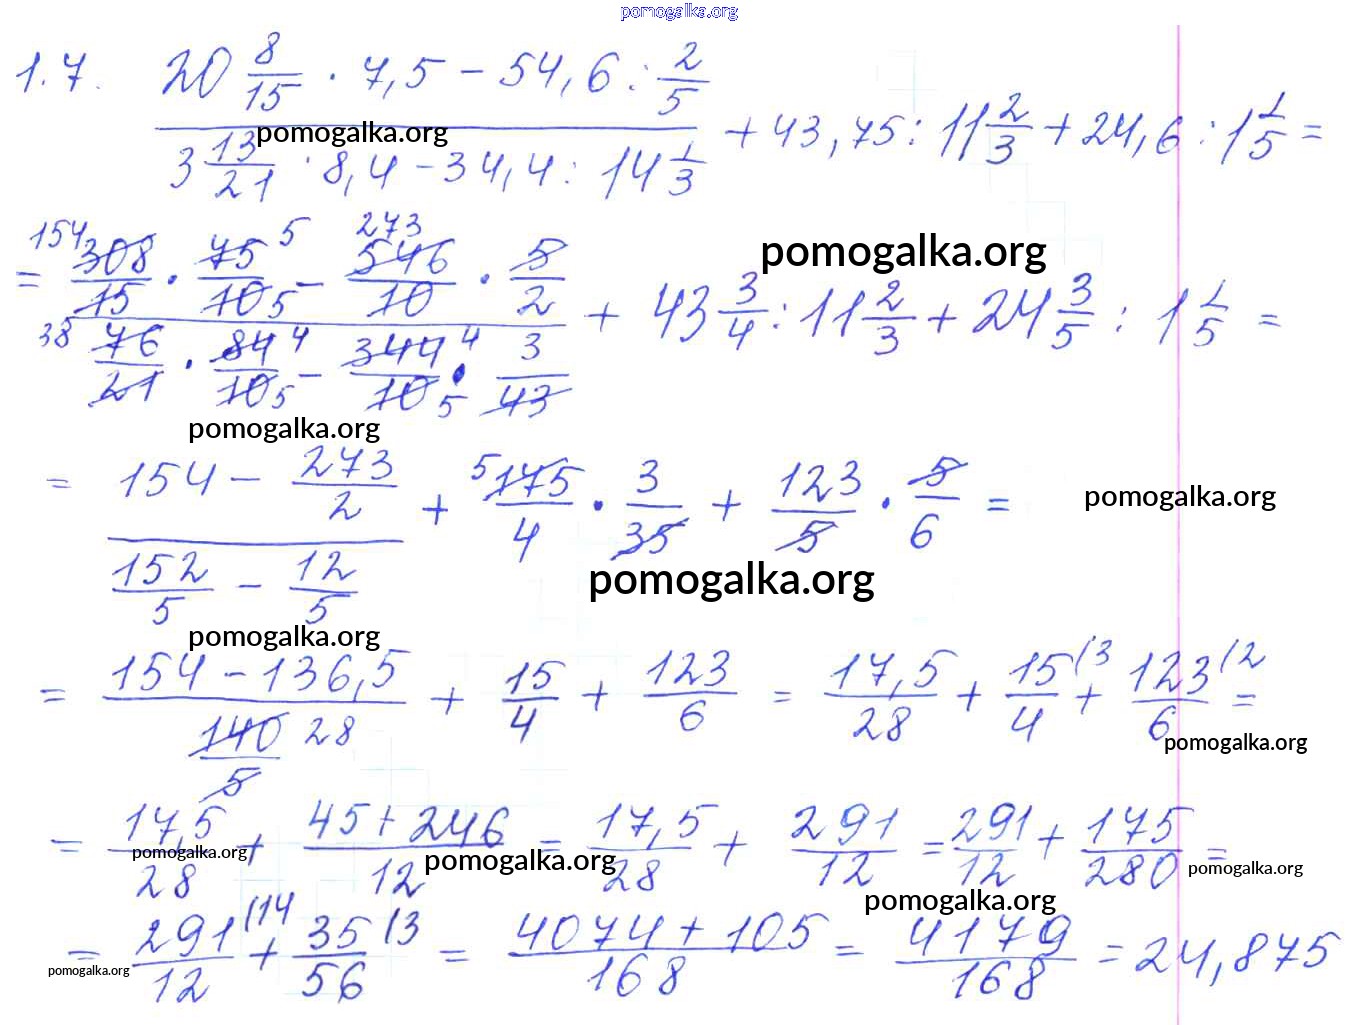 pomogalka.org
1.7. (20 8/15 · 7,5 − 54,6 : 2/5) / (3 13/21 · 8,4 − 34,4 : 14 1/3) + 43,75 : 11 2/3 + 24,6 : 1 1/5 =
pomogalka.org
= (154 308/15 · 75/10 5 5 − 273 546/10 · 5/2) / (38 76/21 · 84/10 4 5 − 344/10 4 5 · 3/43) + 43 3/4 : 11 2/3 + 24 3/5 : 1 1/5 =
pomogalka.org
pomogalka.org
= (154 − 273/2) / (152/5 − 12/5) + 5 175/4 · 3/35 + 123/5 · 5/6 =
pomogalka.org
pomogalka.org
pomogalka.org
= (154 − 136,5) / (140/5 28) + 15/4 + 123/6 = 17,5/28 + 15/4 (3 + 123/6 (2 =
pomogalka.org
= 17,5/28 + (45 + 246)/12 = 17,5/28 + 291/12 = 291/12 + 175/280 =
pomogalka.org
pomogalka.org
pomogalka.org
pomogalka.org
= 291/12 (14 + 35/56 (3 = (4074 + 105)/168 = 4179/168 = 24,875
pomogalka.org